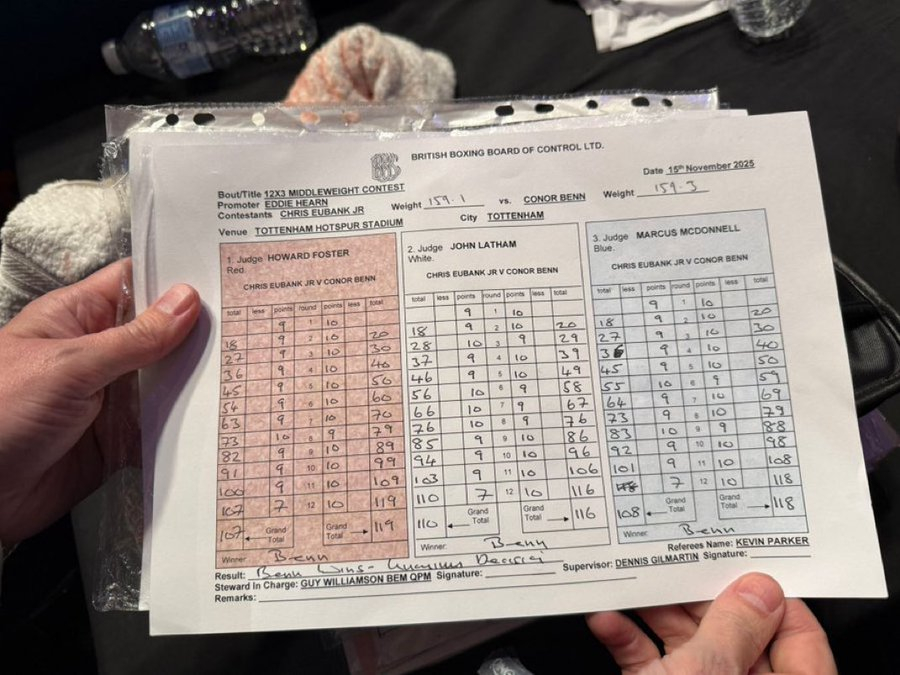 BRITISH BOXING BOARD OF CONTROL LTD.
Date 15th November 2025
Bout/Title 12X3 MIDDLEWEIGHT CONTEST
Promoter EDDIE HEARN
Contestants CHRIS EUBANK JR Weight 159.1 vs. CONOR BENN Weight 159.3
Venue TOTTENHAM HOTSPUR STADIUM City TOTTENHAM
1. Judge HOWARD FOSTER
Red.
CHRIS EUBANK JR V CONOR BENN
total less points round points less total
9 1 10
18 9 2 10 20
27 9 3 10 30
36 9 4 10 40
45 9 5 10 50
54 9 6 10 60
63 9 7 10 70
73 10 8 9 79
82 9 9 10 89
91 9 10 10 99
100 9 11 10 109
107 7 12 10 119
107 Grand Total Grand Total 119
Winner: Benn
2. Judge JOHN LATHAM
White.
CHRIS EUBANK JR V CONOR BENN
total less points round points less total
9 1 10
18 9 2 10 20
28 10 3 9 29
37 9 4 10 39
46 9 5 10 49
56 10 6 9 58
66 10 7 9 67
76 10 8 9 76
85 9 9 10 86
94 9 10 10 96
103 9 11 10 106
110 7 12 10 116
110 Grand Total Grand Total 116
Winner: Benn
3. Judge MARCUS MCDONNELL
Blue.
CHRIS EUBANK JR V CONOR BENN
total less points round points less total
9 1 10
18 9 2 10 20
27 9 3 10 30
36 9 4 10 40
45 9 5 10 50
55 10 6 9 59
64 9 7 10 69
73 9 8 10 79
83 10 9 9 88
92 9 10 10 98
101 9 11 10 108
7 12 10 118
108 Grand Total Grand Total 118
Winner: Benn
Result: Benn Wins - Unanimous Decision
Referees Name: KEVIN PARKER
Steward In Charge: GUY WILLIAMSON BEM QPM Signature: Supervisor: DENNIS GILMARTIN Signature:
Remarks: